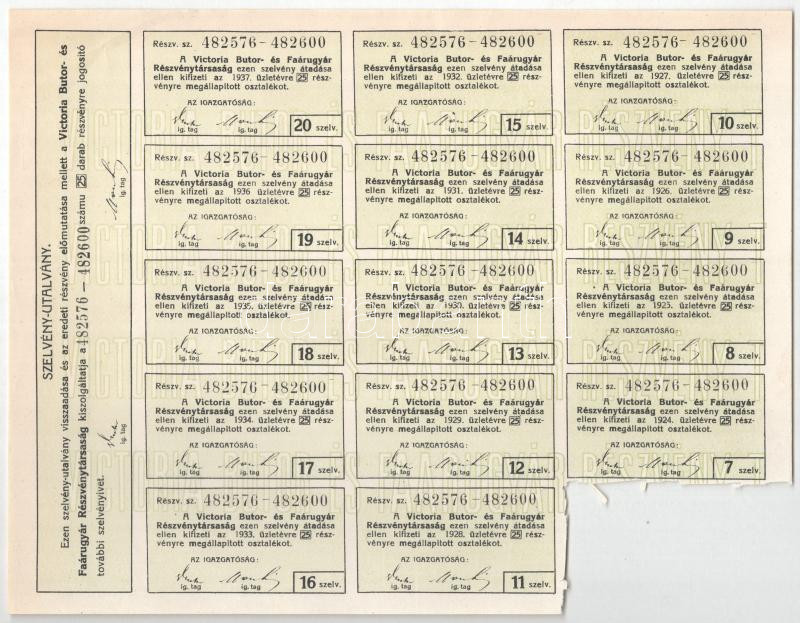 SZELVÉNY-UTALVÁNY.
Ezen szelvény-utalvány visszaadása és az eredeti részvény előmutatása mellett a Victoria Butor- és
Faárugyár Részvénytársaság kiszolgáltatja a 482576 – 482600 számu 25 darab részvényre jogosító
további szelvényívet.
ig. tag
ig. tag
Részv. sz. 482576-482600
A Victoria Butor- és Faárugyár
Részvénytársaság ezen szelvény átadása
ellen kifizeti az 1937. üzletévre 25 rész-
vényre megállapitott osztalékot.
AZ IGAZGATÓSÁG:
ig. tag ig. tag 20 szelv.
Részv. sz. 482576-482600
A Victoria Butor- és Faárugyár
Részvénytársaság ezen szelvény átadása
ellen kifizeti az 1936 üzletévre 25 rész-
vényre megállapitott osztalékot.
AZ IGAZGATÓSÁG:
ig. tag ig. tag 19 szelv.
Részv. sz. 482576-482600
A Victoria Butor- és Faárugyár
Részvénytársaság ezen szelvény átadása
ellen kifizeti az 1935. üzletévre 25 rész-
vényre megállapitott osztalékot.
AZ IGAZGATÓSÁG:
ig. tag ig. tag 18 szelv.
Részv. sz. 482576-482600
A Victoria Butor- és Faárugyár
Részvénytársaság ezen szelvény átadása
ellen kifizeti az 1934. üzletévre 25 rész-
vényre megállapitott osztalékot.
AZ IGAZGATÓSÁG:
ig. tag ig. tag 17 szelv.
Részv. sz. 482576-482600
A Victoria Butor- és Faárugyár
Részvénytársaság ezen szelvény átadása
ellen kifizeti az 1933. üzletévre 25 rész-
vényre megállapitott osztalékot.
AZ IGAZGATÓSÁG:
ig. tag ig. tag 16 szelv.
Részv. sz. 482576-482600
A Victoria Butor- és Faárugyár
Részvénytársaság ezen szelvény átadása
ellen kifizeti az 1932. üzletévre 25 rész-
vényre megállapitott osztalékot.
AZ IGAZGATÓSÁG:
ig. tag ig. tag 15 szelv.
Részv. sz. 482576-482600
A Victoria Butor- és Faárugyár
Részvénytársaság ezen szelvény átadása
ellen kifizeti az 1931. üzletévre 25 rész-
vényre megállapitott osztalékot.
AZ IGAZGATÓSÁG:
ig. tag ig. tag 14 szelv.
Részv. sz. 482576-482600
A Victoria Butor- és Faárugyár
Részvénytársaság ezen szelvény átadása
ellen kifizeti az 1930. üzletévre 25 rész-
vényre megállapitott osztalékot.
AZ IGAZGATÓSÁG:
ig. tag ig. tag 13 szelv.
Részv. sz. 482576-482600
A Victoria Butor- és Faárugyár
Részvénytársaság ezen szelvény átadása
ellen kifizeti az 1929. üzletévre 25 rész-
vényre megállapitott osztalékot.
AZ IGAZGATÓSÁG:
ig. tag ig. tag 12 szelv.
Részv. sz. 482576-482600
A Victoria Butor- és Faárugyár
Részvénytársaság ezen szelvény átadása
ellen kifizeti az 1928. üzletévre 25 rész-
vényre megállapitott osztalékot.
AZ IGAZGATÓSÁG:
ig. tag ig. tag 11 szelv.
Részv. sz. 482576-482600
A Victoria Butor- és Faárugyár
Részvénytársaság ezen szelvény átadása
ellen kifizeti az 1927. üzletévre 25 rész-
vényre megállapitott osztalékot.
AZ IGAZGATÓSÁG:
ig. tag ig. tag 10 szelv.
Részv. sz. 482576-482600
A Victoria Butor- és Faárugyár
Részvénytársaság ezen szelvény átadása
ellen kifizeti az 1926. üzletévre 25 rész-
vényre megállapitott osztalékot.
AZ IGAZGATÓSÁG:
ig. tag ig. tag 9 szelv.
Részv. sz. 482576-482600
A Victoria Butor- és Faárugyár
Részvénytársaság ezen szelvény átadása
ellen kifizeti az 1925. üzletévre 25 rész-
vényre megállapitott osztalékot.
AZ IGAZGATÓSÁG:
ig. tag ig. tag 8 szelv.
Részv. sz. 482576-482600
A Victoria Butor- és Faárugyár
Részvénytársaság ezen szelvény átadása
ellen kifizeti az 1924. üzletévre 25 rész-
vényre megállapitott osztalékot.
AZ IGAZGATÓSÁG:
ig. tag ig. tag 7 szelv.